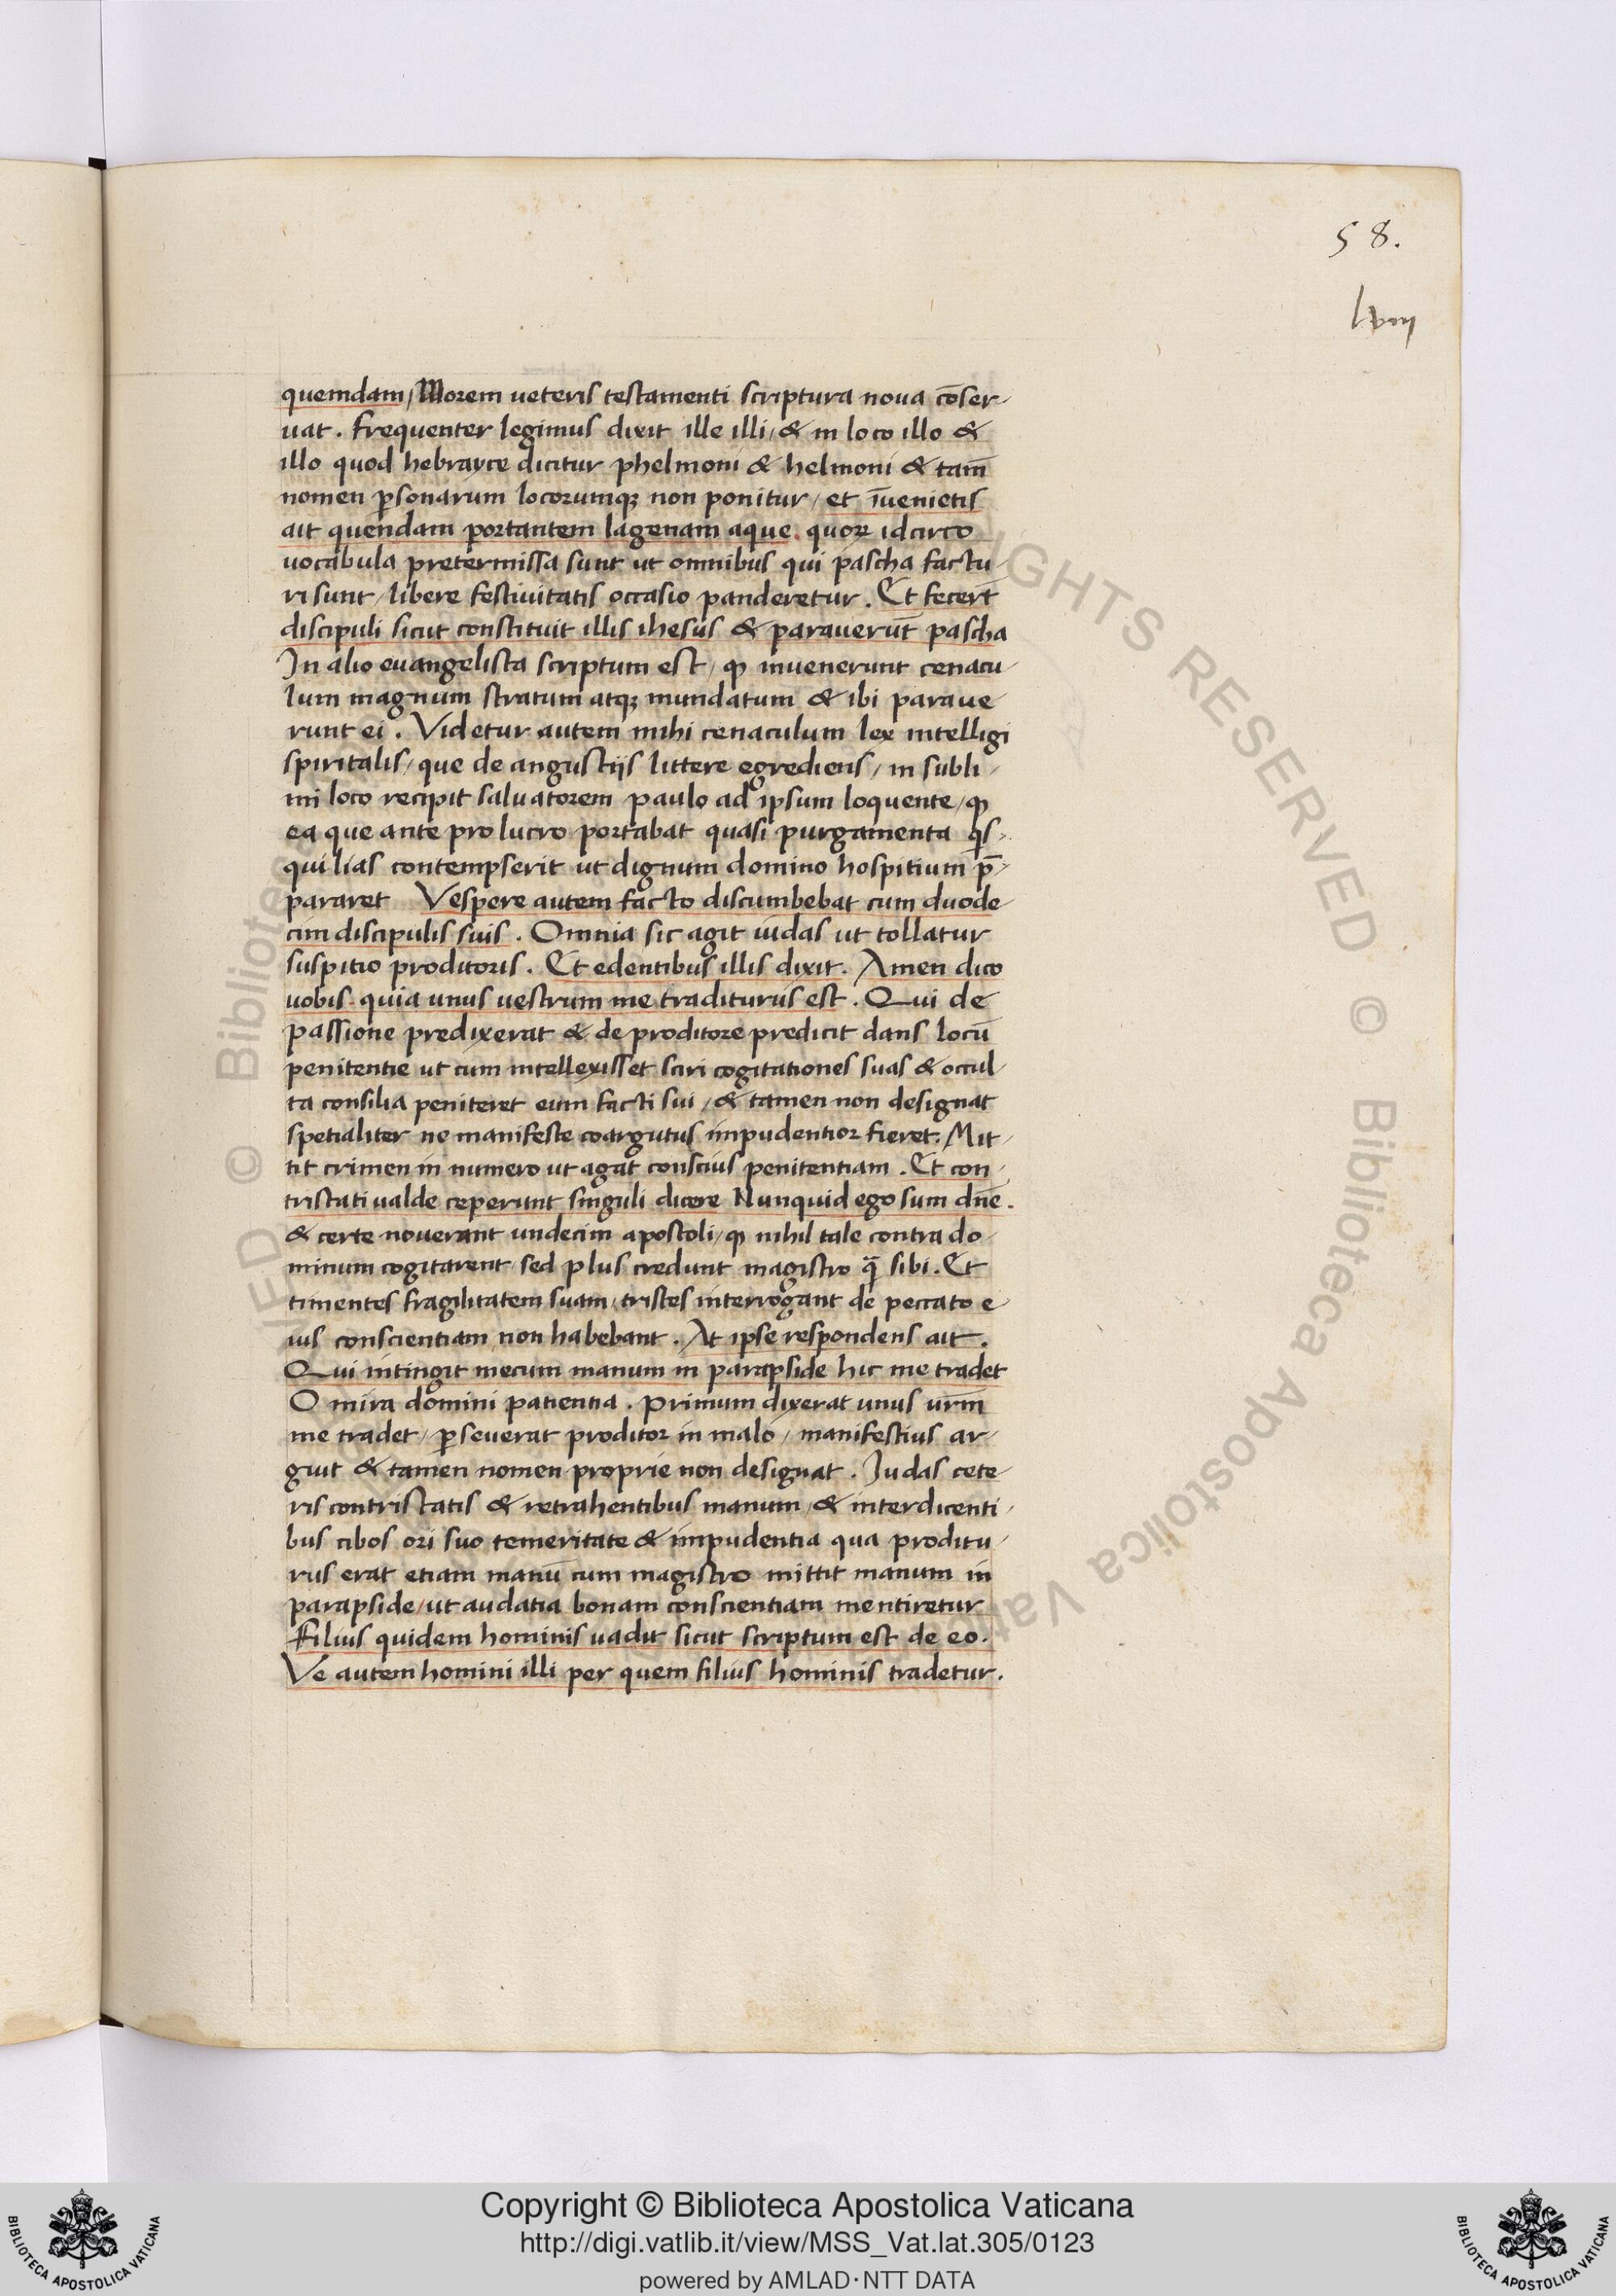 58.
lviij
quemdam / Morem ueteris testamenti scriptura noua cōser-
uat. frequenter legimus dixit ille illi / & in loco illo &
illo quod hebrayce dicitur phelmoni & helmoni & tam̄
nomen p̱sonarum locorumqꝫ non ponitur / et īuenietis
ait quendam portantem lagenam aque. quoꝝ idcirco
uocabula pretermissa sunt ut omnibus qui pascha factu
ri sunt / libere festiuitatis occasio panderetur. Et fecert̄
discipuli sicut constituit illis ihesus & parauerūt pascha
In alio euangelista scriptum est / ꝙ inuenerunt cenacu-
lum magnum stratum atqꝫ mundatum & ibi paraue
runt ei. Videtur autem mihi cenaculum lex intelligi
spiritalis / que de angustijs littere egrediens / in subli-
mi loco recipit saluatorem paulo ad ipsum loquente / ꝙ
ea que ante pro lucro portabat quasi purgamenta q̄s-
quilias contempserit ut dignum domino hospitium p̄-
pararet Vespere autem facto discumbebat cum duode-
cim discipulis suis. Omnia sic agit iudas ut tollatur
suspitio proditoris. Et edentibus illis dixit. Amen dico
uobis quia unus uestrum me traditurus est. Qui de
passione predixerat & de proditore predicit dans locū
penitentie ut cum intellexisset sciri cogitationes suas & occul-
ta consilia peniteret eum facti sui / & tamen non designat
spetialiter ne manifeste coargutus impudentior fieret: Mit-
tit crimen in numero ut agat conscius penitentiam. Et con-
tristati ualde ceperunt singuli dicere Nunquid ego sum dn̄e.
& certe nouerant undecim apostoli / ꝙ nihil tale contra do-
minum cogitarent sed plus credunt magistro q̄ sibi. Et
timentes fragilitatem suam / tristes interrogant de peccato e-
ius conscientiam non habebant. At ipse respondens ait.
Qui intingit mecum manum in parapside hic me tradet
O mira domini patientia. Primum dixerat unus ur̄m
me tradet / ꝑseuerat proditor in malo / manifestius ar-
guit & tamen nomen proprie non designat. Judas cete-
ris contristatis & retrahentibus manum / & interdicenti-
bus cibos ori suo temeritate & impudentia qua proditu-
rus erat etiam manū cum magistro mittit manum in
parapside / ut audatia bonam conscientiam mentiretur
Filius quidem hominis uadit sicut scriptum est de eo.
Ve autem homini illi per quem filius hominis tradetur.
© Biblioteca Apostolica Vaticana
RIGHTS RESERVED
Copyright © Biblioteca Apostolica Vaticana
http://digi.vatlib.it/view/MSS_Vat.lat.305/0123
powered by AMLAD·NTT DATA
BIBLIOTECA APOSTOLICA VATICANA
BIBLIOTECA APOSTOLICA VATICANA